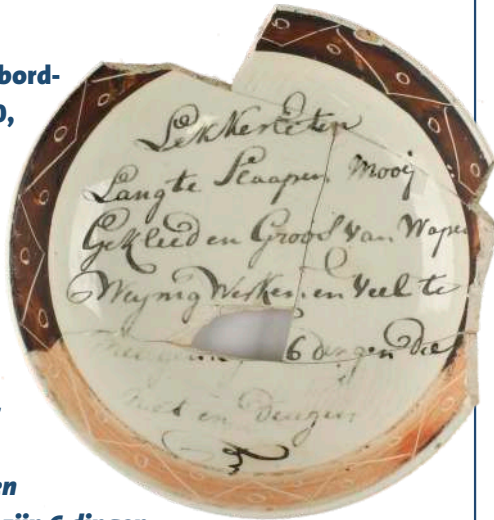 bord-
0,
Lekker Eten
Lang te Slaapen Mooij
Gekleed en Groos Van Wapen
Weynig Werken en Veel te
6 dingen die
niet en Deugen
en
zijn 6 dingen